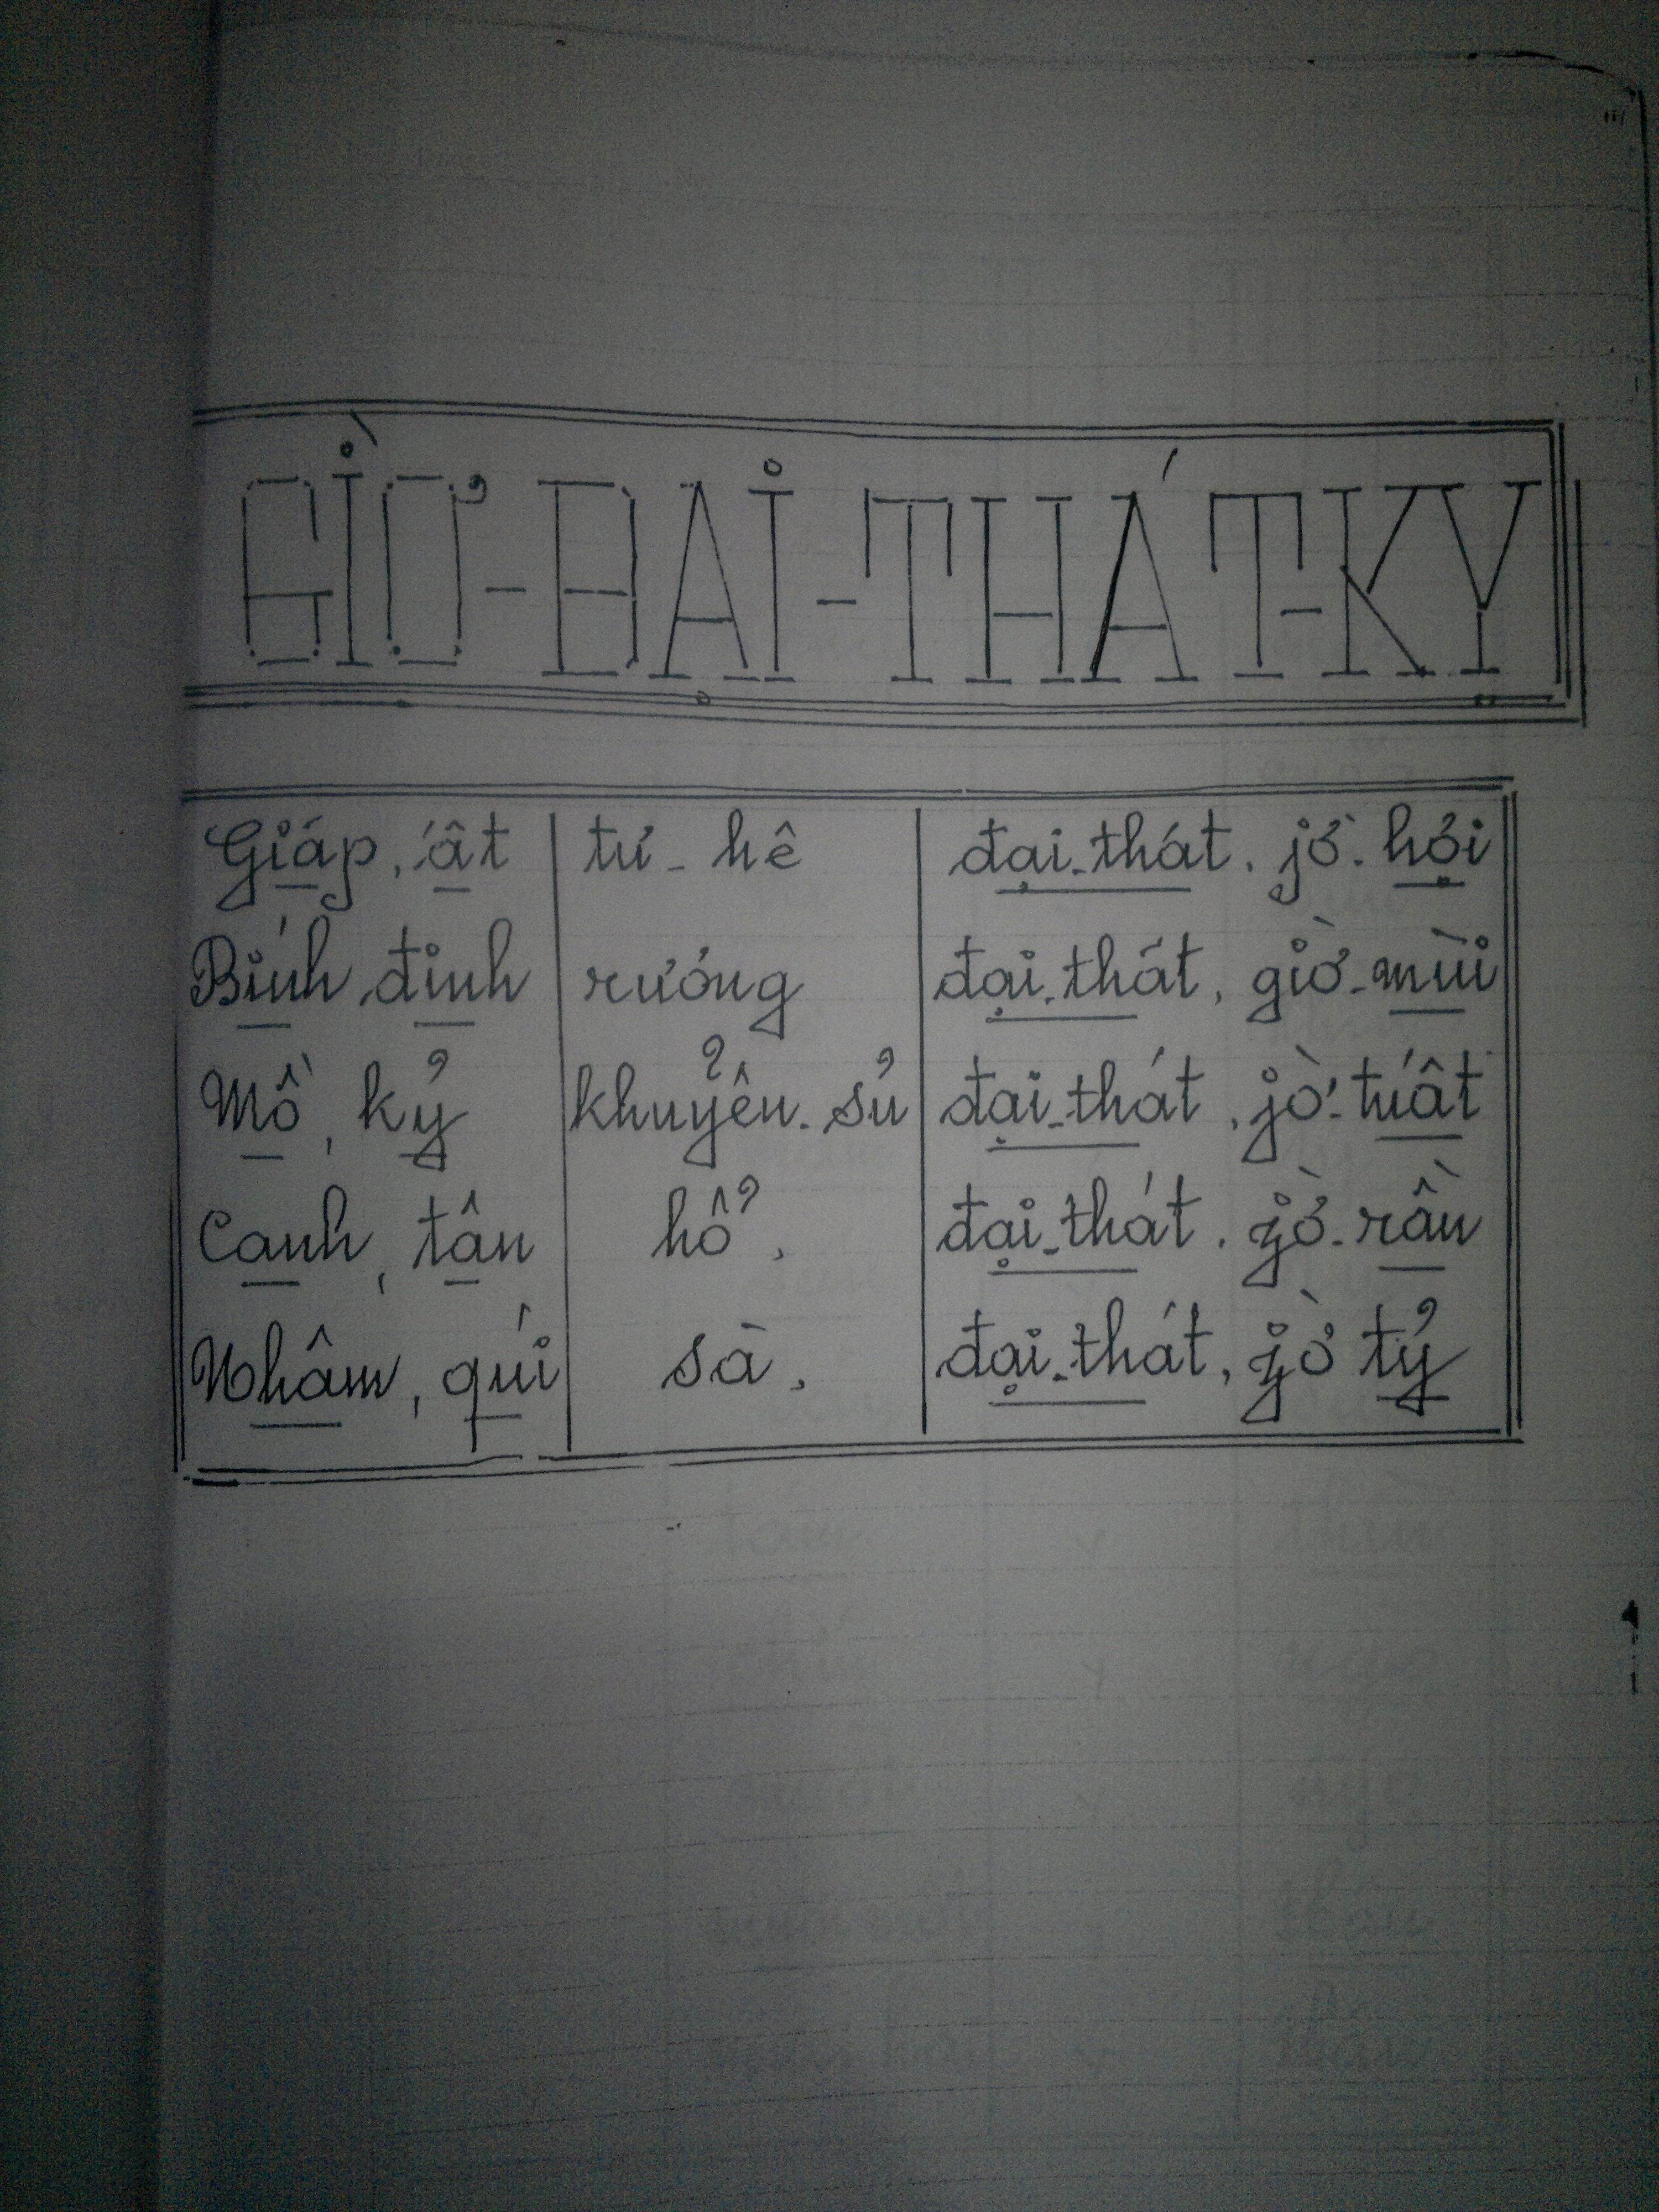 GIỜ-ĐẠI-THÁT-KỴ
Giáp, ất tư-hê đại-thát. jờ. hợi
Bính, đinh rương đại-thát, giờ-mùi
Mồ, kỷ khuyển-sử đại-thát, jờ-tuất
Canh, tân hổ, đại-thát. jờ-rần
Nhâm, quí sà, đại-thát, jờ tỷ